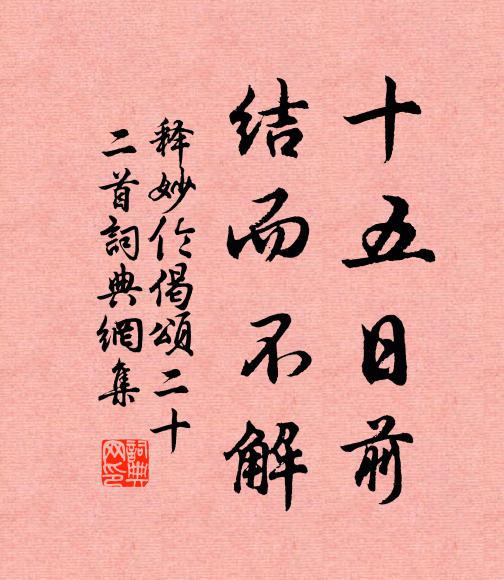 十五日前
结而不解
释妙伦偈颂二十
二首詞典網集
詞典网印